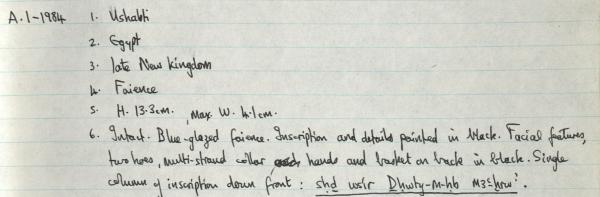 A.1-1984 1. Ushabti
2. Egypt
3. late New Kingdom
4. Faience
5. H. 13.3cm. Max W. 4.1cm.
6. Intact. Blue-glazed faience. Inscription and details painted in black. Facial features,
two hoes, multi-strand collar, hands and basket on back in black. Single
column of inscription down front: sḥḏ wsir Ḏḥwty-m-ḥb m3ʿḫrw.